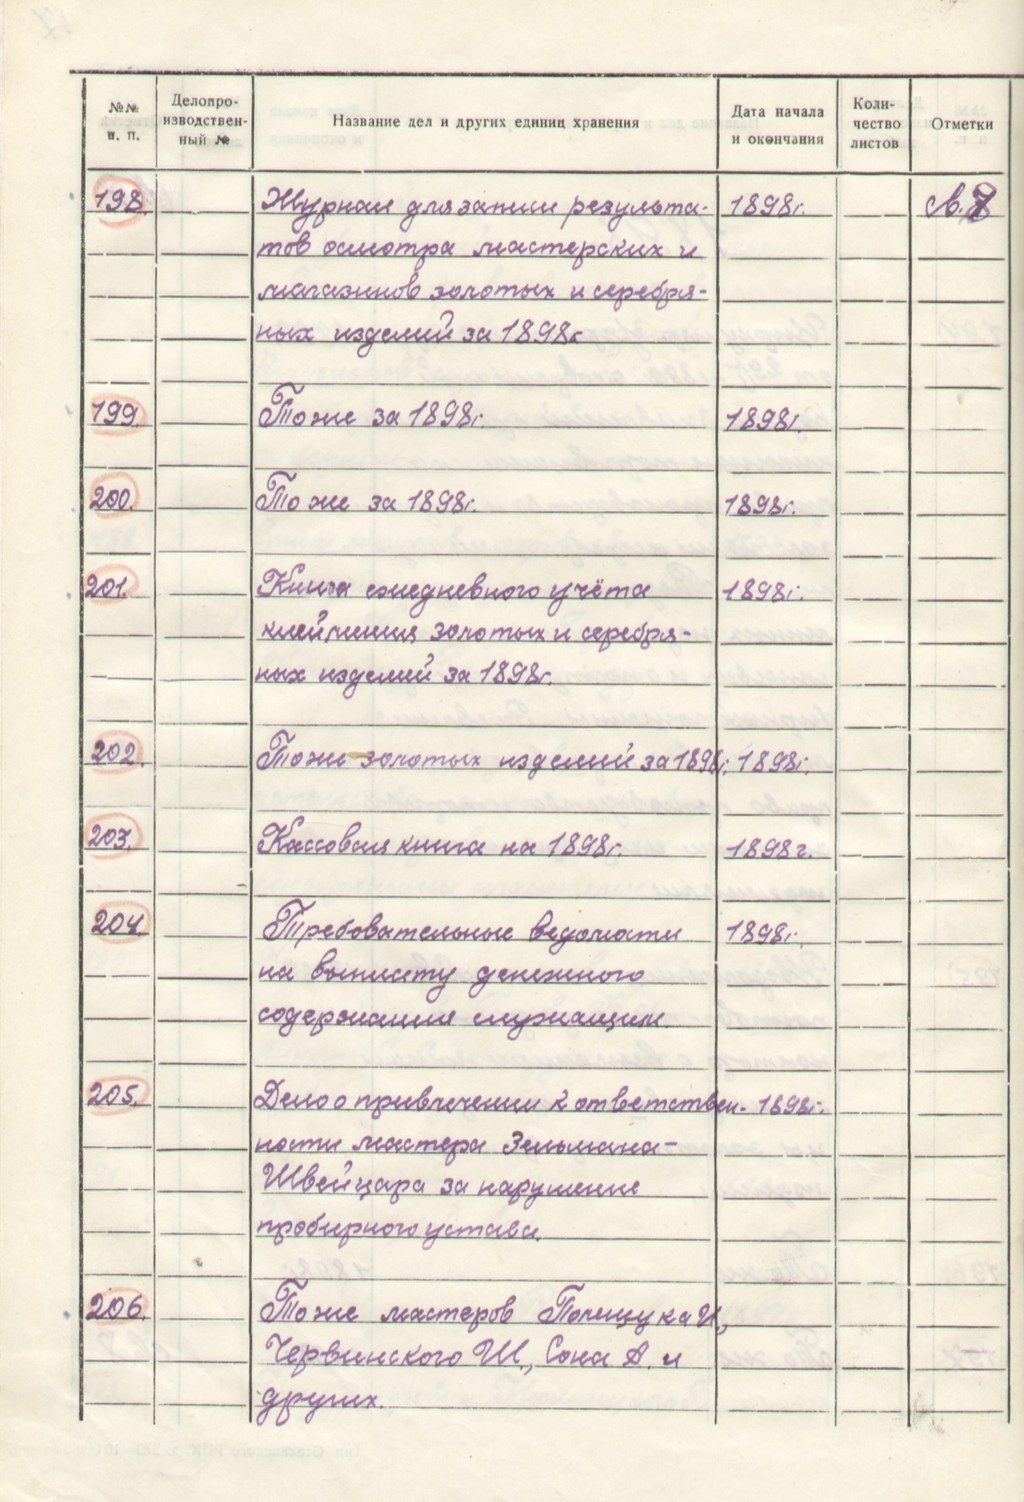 №№ п. п.
Делопро-
изводствен-
ный №
Название дел и других единиц хранения
Дата начала
и окончания
Коли-
чество
листов
Отметки
198. Журнал для записи результа- 1898г. св.
тов осмотра мастерских и
магазинов золотых и серебря-
ных изделий за 1898г.
199. То же за 1898г. 1898г.
200. То же за 1898г. 1898г.
201. Книга ежедневного учёта 1898г.
клеймения золотых и серебря-
ных изделий за 1898г.
202. То же золотых изделий за 1898г. 1898г.
203. Кассовая книга на 1898г. 1898г.
204. Требовательные ведомости 1898г.
на выплату денежного
содержания служащим.
205. Дело о привлечении к ответствен- 1898г.
ности мастера Зельмана-
Швейцара за нарушение
пробирного устава.
206. То же мастеров Полищука И.,
Червинского Ш., Сона А. и
других.